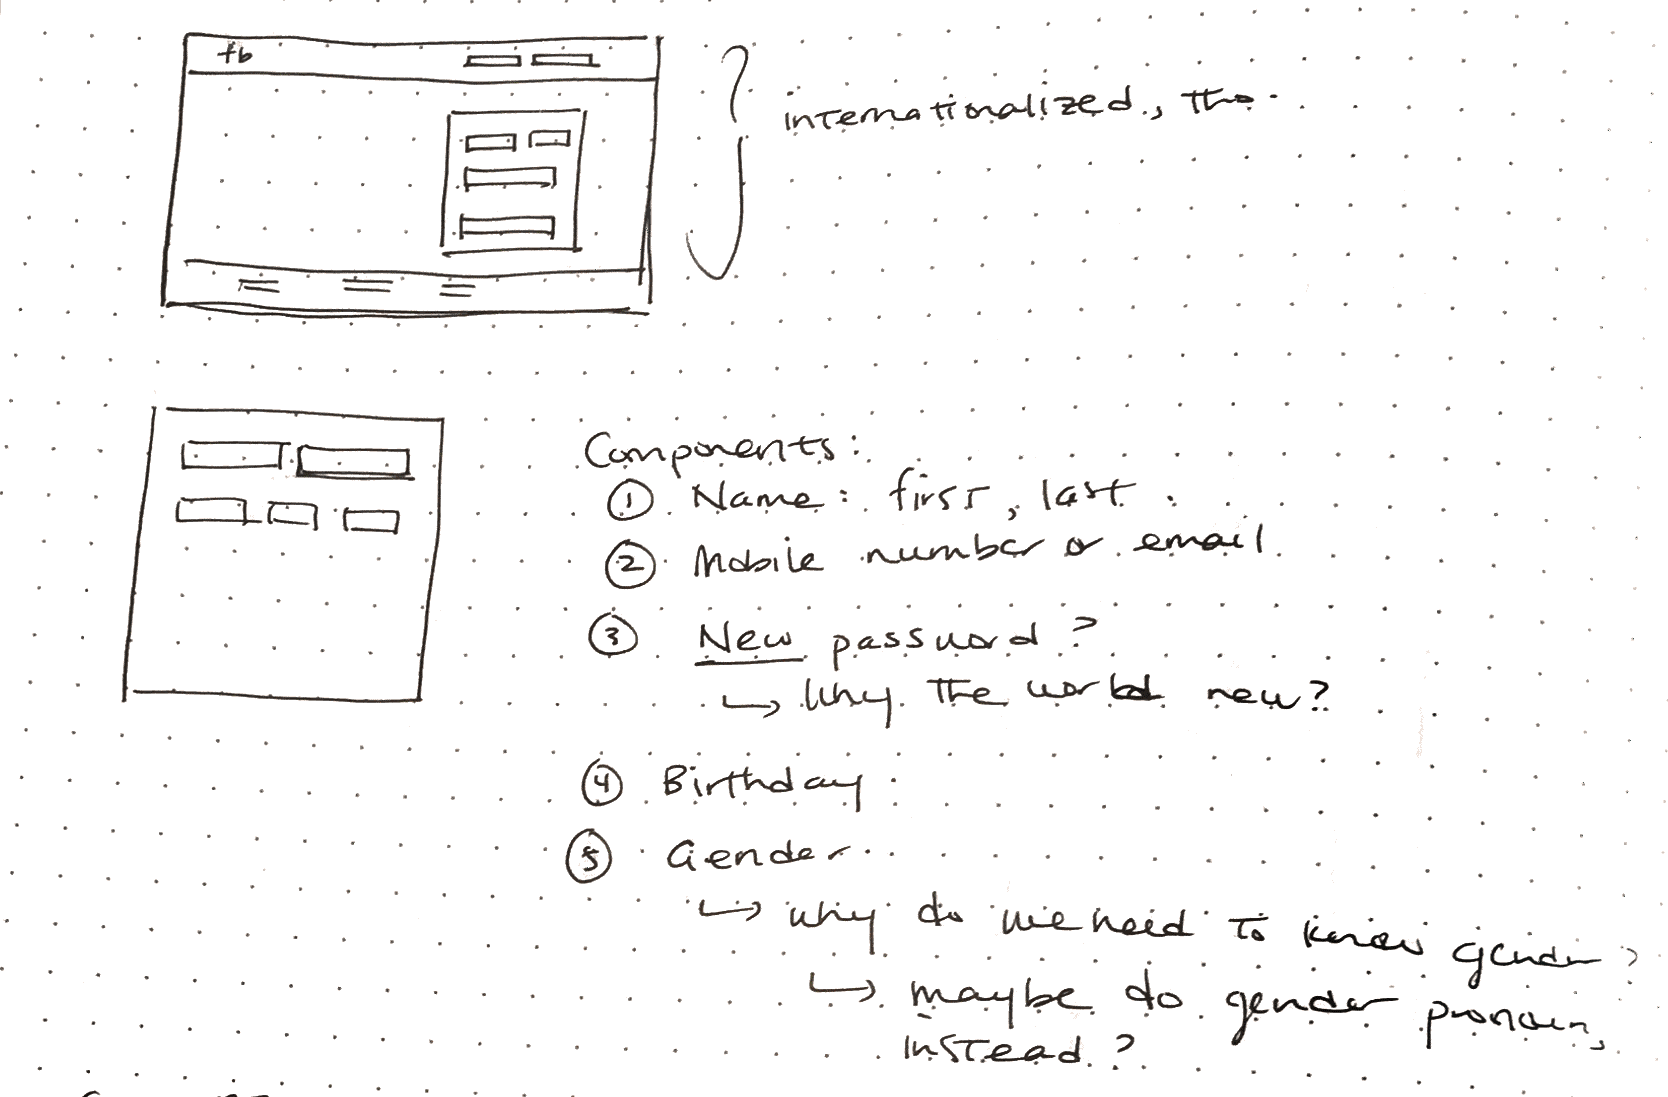 fb
internationalized, tho
Components:
① Name: first, last
② Mobile number or email
③ New password?
↳ Why the world new?
④ Birthday
⑤ Gender
↳ why do we need to know gender?
↳ maybe do gender pronoun,
instead?